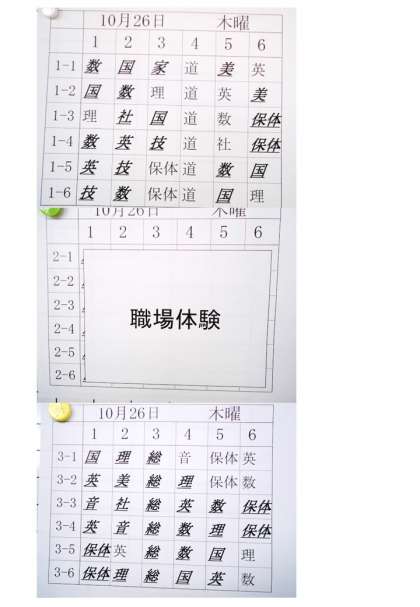 10月26日 木曜
1 2 3 4 5 6
1-1 数 国 家 道 美 英
1-2 国 数 理 道 英 美
1-3 理 社 国 道 数 保体
1-4 数 英 技 道 社 保体
1-5 英 技 保体 道 数 国
1-6 技 数 保体 道 国 理
10月26日 木曜
1 2 3 4 5 6
2-1
2-2
2-3
職場体験
2-4
2-5
2-6
10月26日 木曜
1 2 3 4 5 6
3-1 国 理 総 音 保体 英
3-2 英 美 総 理 保体 数
3-3 音 社 総 英 数 保体
3-4 英 音 総 数 理 保体
3-5 保体 英 総 数 国 理
3-6 保体 理 総 国 英 数